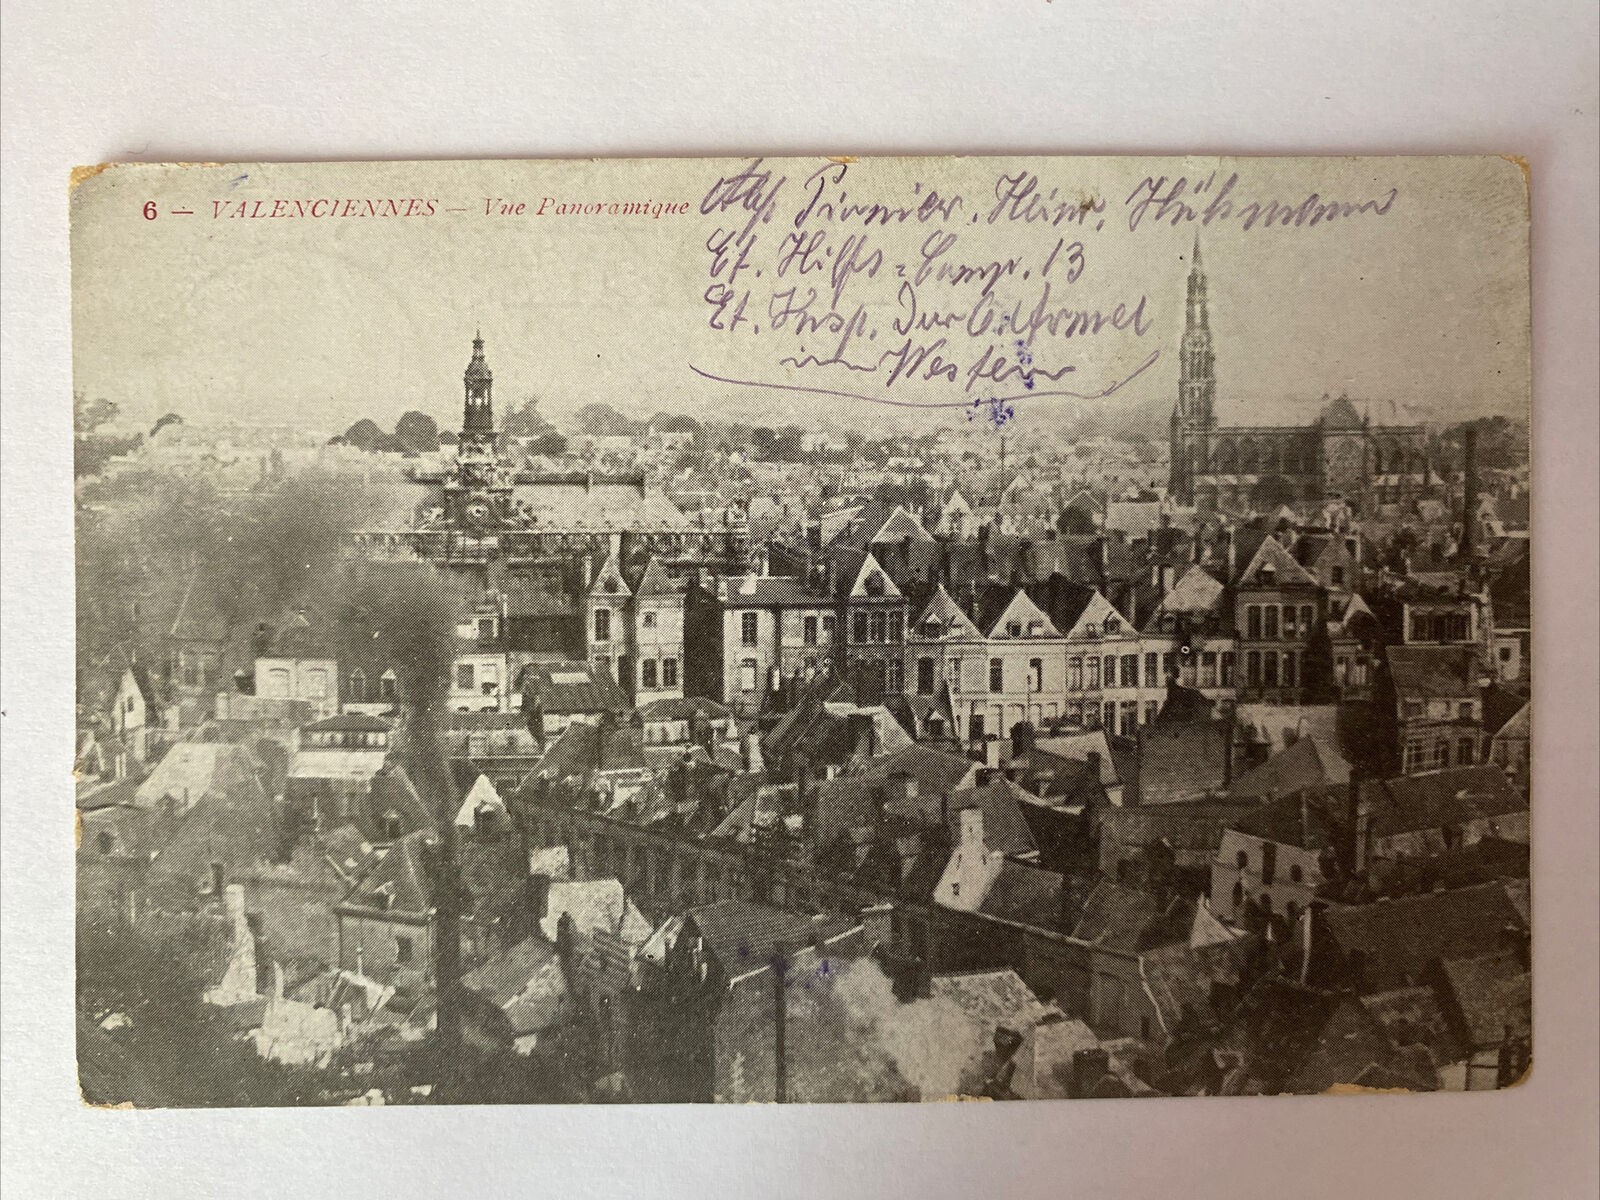 6 — VALENCIENNES — Vue Panoramique
Abs. Pionier. Heinr. Hühmann
Et. Hilfs-Comp. 13
Et. Insp. der
im Westen